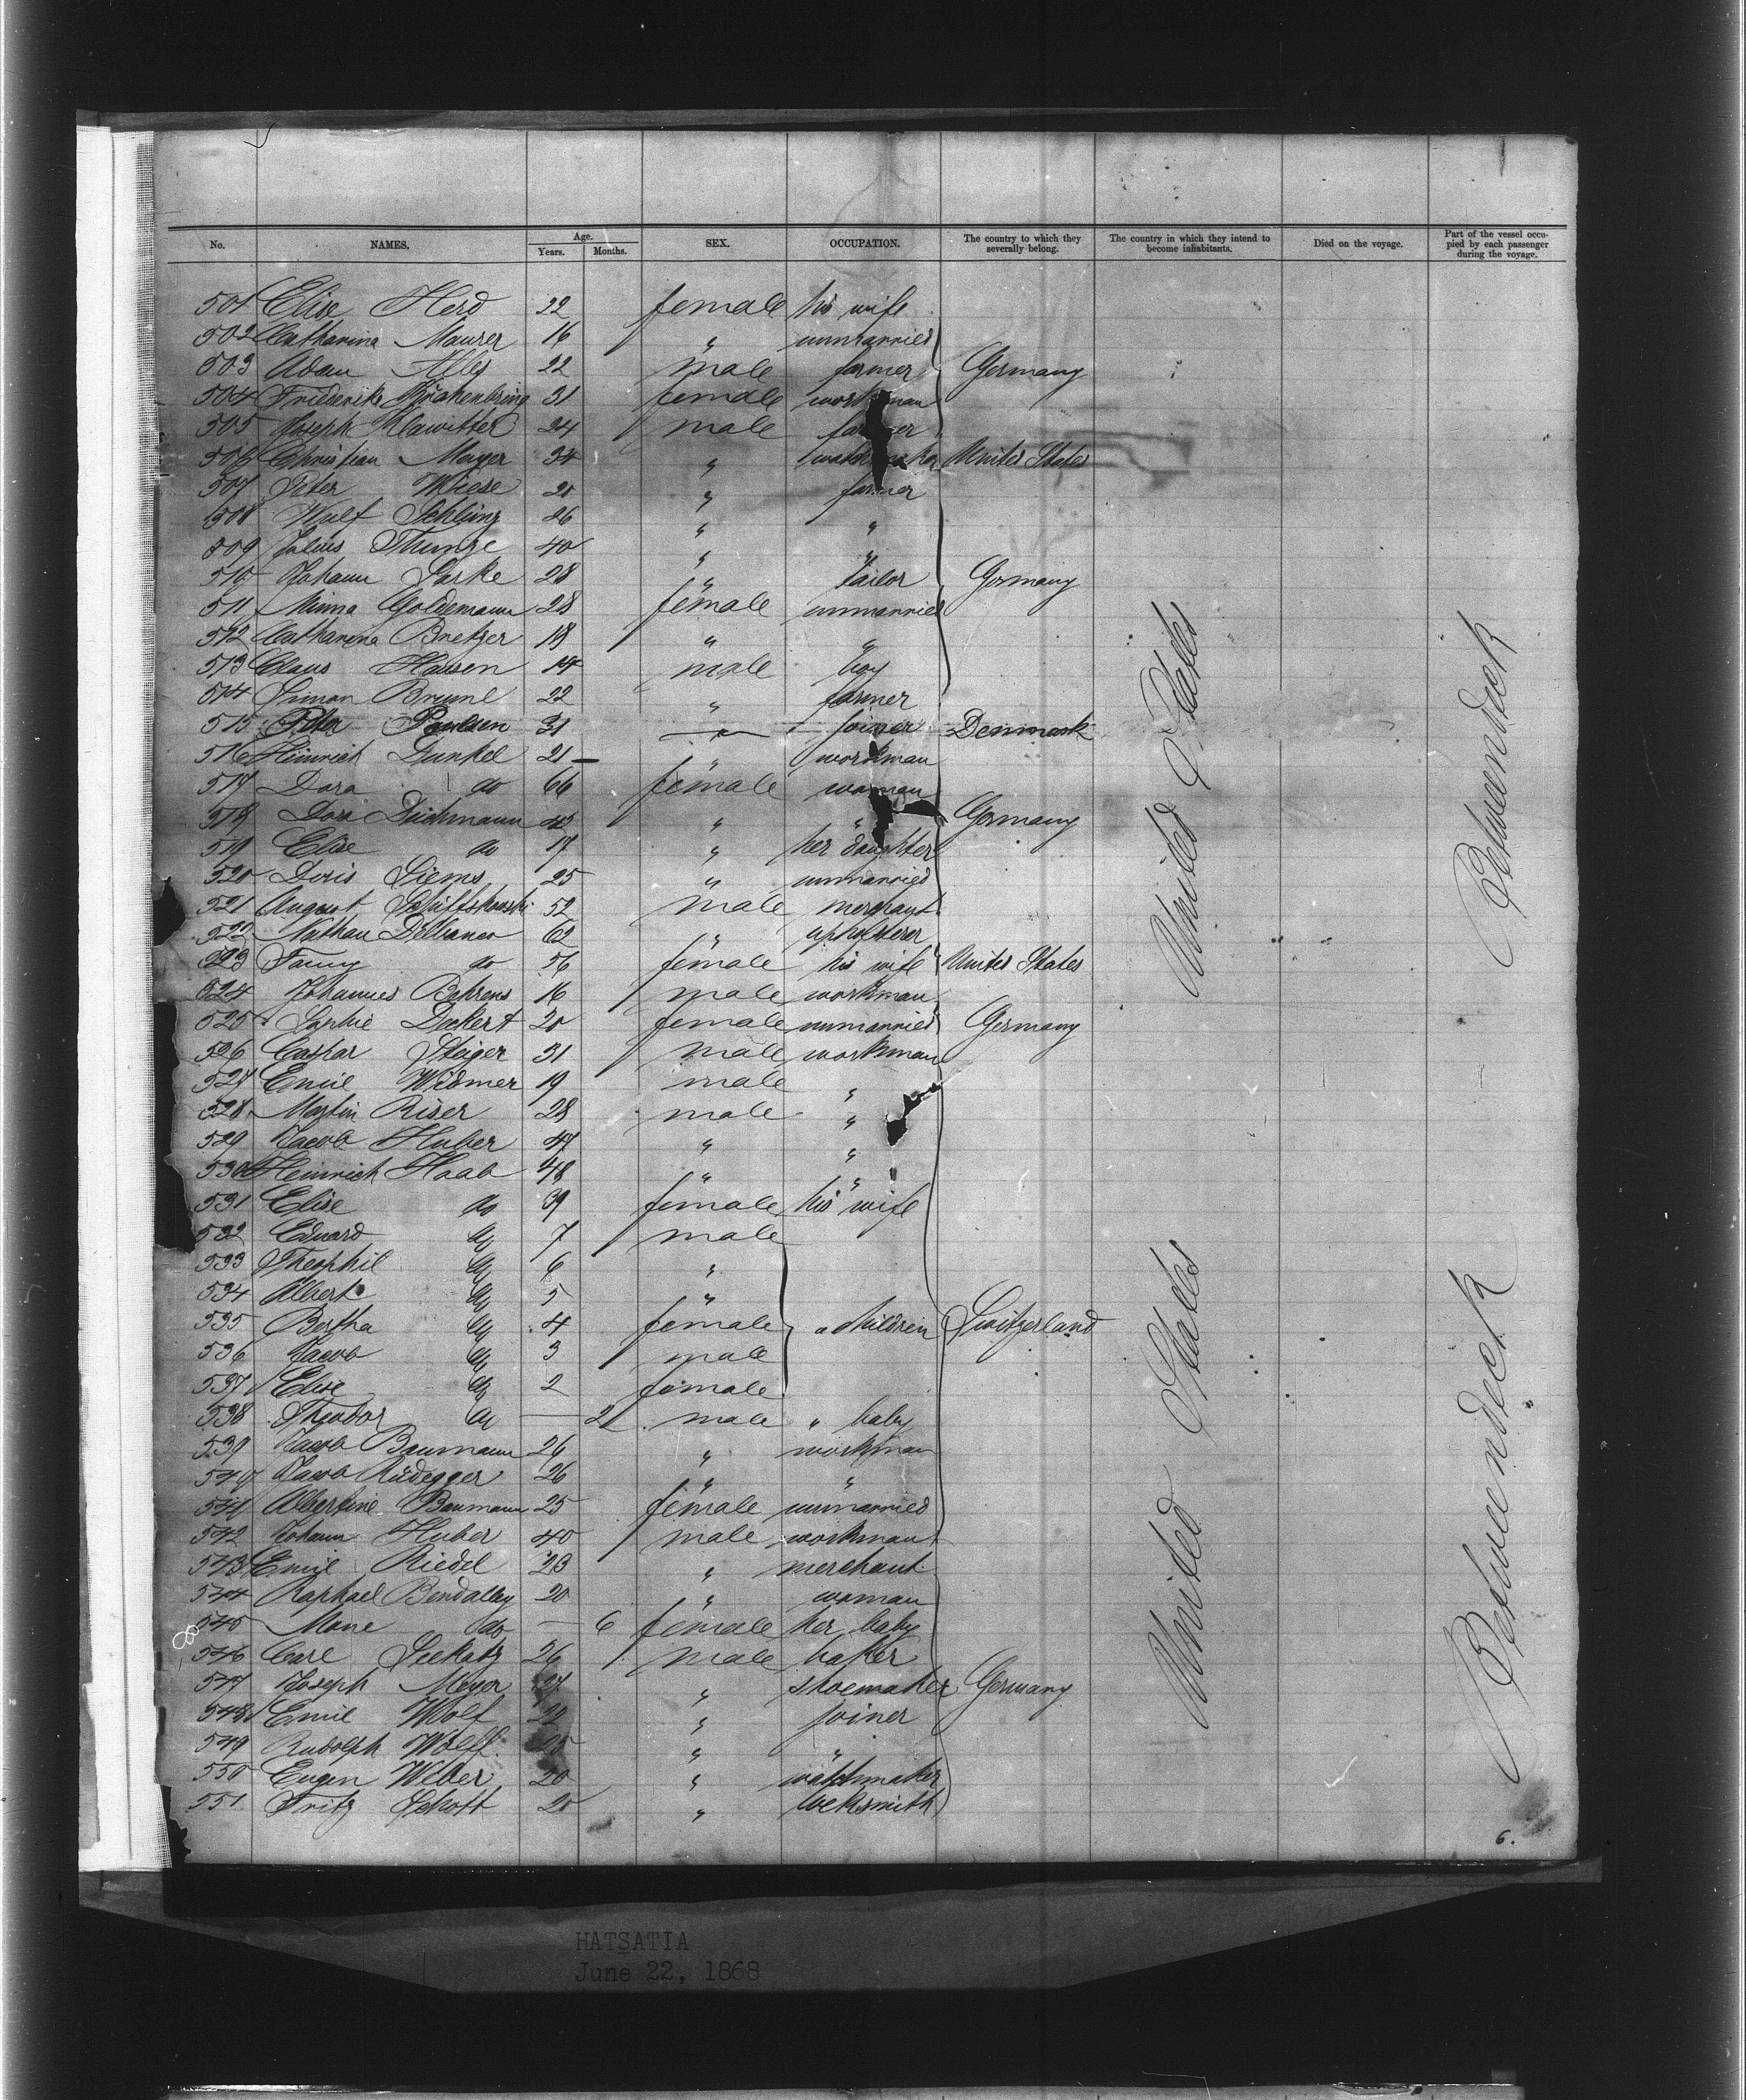 No. NAMES. Age. Years. Months. SEX. OCCUPATION. The country to which they severally belong. The country in which they intend to become inhabitants. Died on the voyage. Part of the vessel occupied by each passenger during the voyage.
501 Elise Herd 22 female his wife
502 Catharina Maurer 16 " unmarried
503 Adam Alles 22 male farmer Germany
504 Friederike 31 female workman
505 Joseph Klawitter 24 male farmer
506 Christian Mayer 34 " United States
507 Peter Wiese 20 " farmer
508 Wulf Schlüng 26 " "
509 Julius Thunge 40 " "
510 Johann Larke 28 " tailor Germany
511 Minna Goldemann 28 female unmarried
512 Catharina Bretzer 18 " "
513 Claus Hassen 14 male boy
514 Simon 22 " farmer
515 Peter Paulsen 31 " joiner Denmark
516 Heinrich Dunkel 21 " workman
517 Dora do 66 female woman
518 Dora Dichmann 42 " " Germany
519 Elise do 17 " her daughter
520 Doris Siems 25 " unmarried
521 August 52 male merchant
522 Nathan 62 " upholsterer
523 Fanny do 56 female his wife United States
524 Johannes Behrens 16 male workman
525 Sophie Deckert 20 female unmarried Germany
526 Caspar Stäger 31 male workman
527 Emil Widmer 19 male "
528 Martin Riser 28 male "
529 Jacob Huber 47 " "
530 Heinrich Haab 48 " "
531 Elise do 39 female his wife
532 Eduard do 7 male
533 Theophil do 6 "
534 Albert do 5 "
535 Bertha do 4 female " children Switzerland
536 Jacob do 3 male
537 Elise do 2 female
538 Theodor do — 2 male " baby
539 Jacob Baumann 26 " workman
540 Jacob Rüdegger 26 " "
541 Albertine Baumann 25 female unmarried
542 Johann Huber 40 male workman
543 Emil Riedel 23 " merchant
544 Raphael Bendalley 20 " woman
545 Marie do — 6 female her baby
546 Carl Seekatz 26 male baker
547 Joseph Meyer 27 " shoemaker Germany
548 Emil Wolf 22 " joiner
549 Rudolph Wolff " "
550 Eugen Weber 20 " watchmaker
551 Fritz Schott 20 " locksmith
United States
United States
Betweendeck
Betweendeck
8
6.
HATSATIA
June 22, 1868